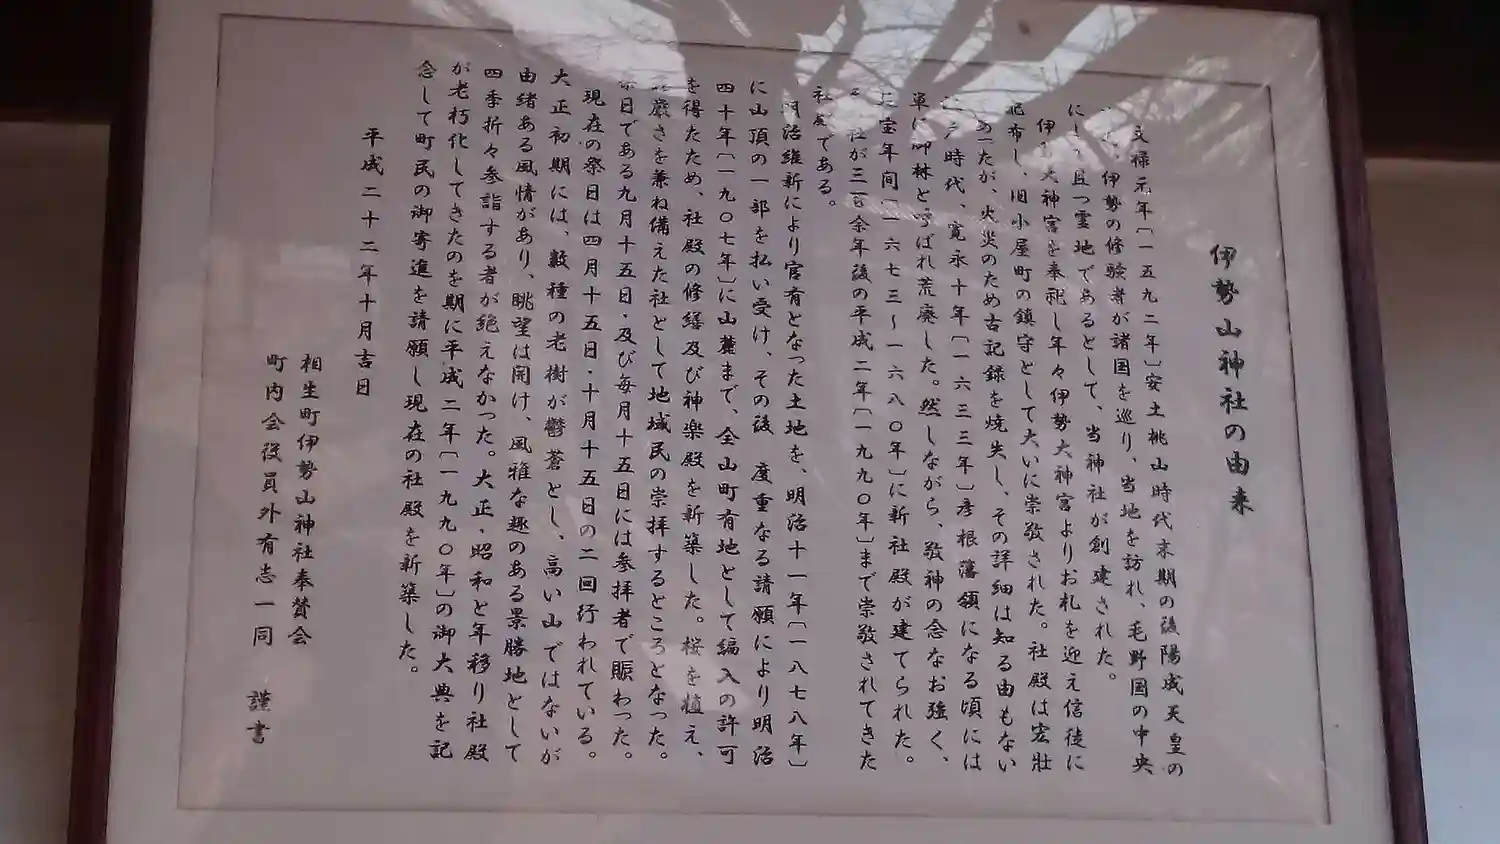 伊勢山神社の由来
文禄元年〔一五九二年〕安土桃山時代末期の後陽成天皇の
伊勢の修験者が諸国を巡り、当地を訪れ、毛野国の中央
にし 且つ霊地であるとして、当神社が創建された。
伊 大神宮を奉祀し年々伊勢大神宮よりお札を迎え信徒に
配布し、旧小屋町の鎮守として大いに崇敬された。社殿は宏壮
あったが、火災のため古記録を焼失し、その詳細は知る由もない
戸時代、寛永十年〔一六三三年〕彦根藩領になる頃には
単に御林と呼ばれ荒廃した。然しながら、敬神の念なお強く、
宝年間〔一六七三〜一六八〇年〕に新社殿が建てられた。
社が三百余年後の平成二年〔一九九〇年〕まで崇敬されてきた
社殿である。
明治維新により官有となった土地を、明治十一年〔一八七八年〕
に山頂の一部を払い受け、その後 度重なる請願により明治
四十年〔一九〇七年〕に山麓まで、全山町有地として編入の許可
を得たため、社殿の修繕及び神楽殿を新築した。桜を植え、
厳さを兼ね備えた社として地域民の崇拝するところとなった。
祭日である九月十五日・及び毎月十五日には参拝者で賑わった。
現在の祭日は四月十五日・十月十五日の二回行われている。
大正初期には、数種の老樹が鬱蒼とし、高い山ではないが
由緒ある風情があり、眺望は開け、風雅な趣のある景勝地として
四季折々参詣する者が絶えなかった。大正・昭和と年移り社殿
が老朽化してきたのを期に平成二年〔一九九〇年〕の御大典を記
念して町民の御寄進を請願し現在の社殿を新築した。
平成二十二年十月吉日
相生町伊勢山神社奉賛会
町内会役員外有志一同 謹書